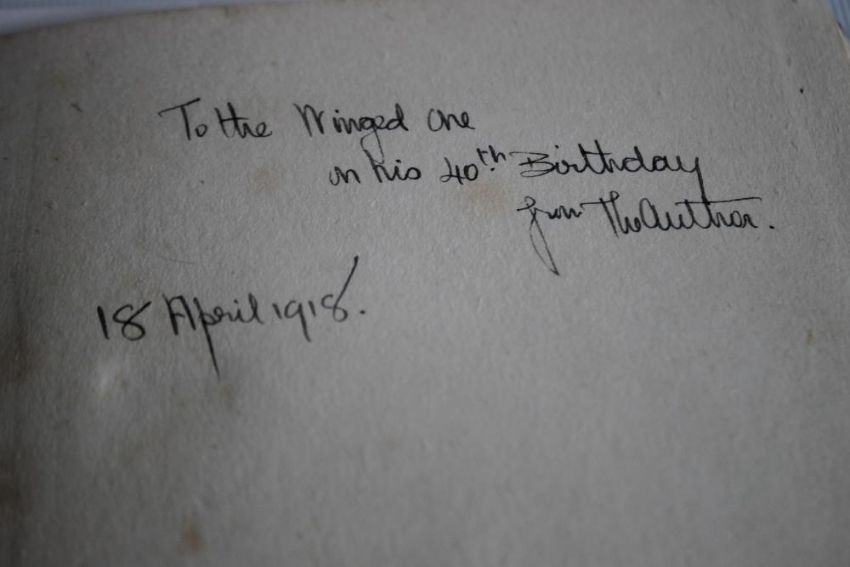 To the Winged One
on his 40th Birthday
from The Author.
18 April 1918.